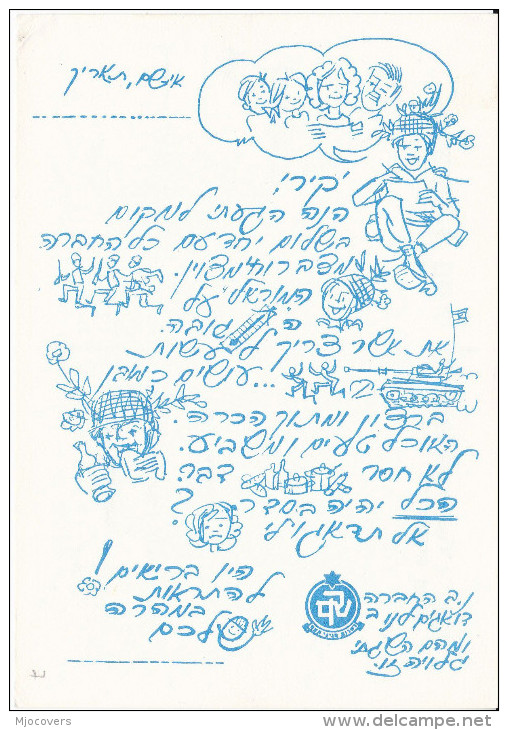 אי שם, תאריך
יקירי
הנה הגעתי למקום
בשלום יחד עם כל החברה
ומצב רוח מצוין.
המורשל על
ה גובה.
את אשר צריך לעשות
עושים כמובן...
ברצון ומתוך הכרה.
האוכל טעים ומשביע.
לא חסר דבר.
הכל יהיה בסדר
אל תדאגו לי
היו בריאים!
להתראות
במהרה
שלכם
נ.ב החברה
דואגים לנו ב
ומהם השגתי
גלויה זו.
Mjocovers
delcampe.net